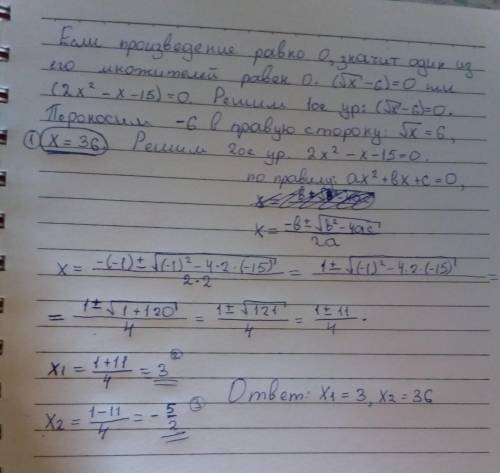 Если произведение равно 0, значит один из
его множителей равен 0. (√x -6)=0 или
(2x² -x-15)=0. Решим 1ое ур: (√x -6)=0.
Переносим -6 в правую сторону: √x = 6,
① x = 36 Решим 2ое ур. 2x² -x-15=0.
по правилу: ax²+bx+c=0,
x = (-b±√(b²-4ac))/2a
x = (-(-1)±√((-1)²-4·2·(-15)))/(2·2) = (1±√((-1)²-4·2·(-15)))/4 =
= (1±√(1+120))/4 = (1±√121)/4 = (1±11)/4.
x1 = (1+11)/4 = 3 ②
x2 = (1-11)/4 = -5/2 ③
Ответ: x1 = 3, x2 = 36